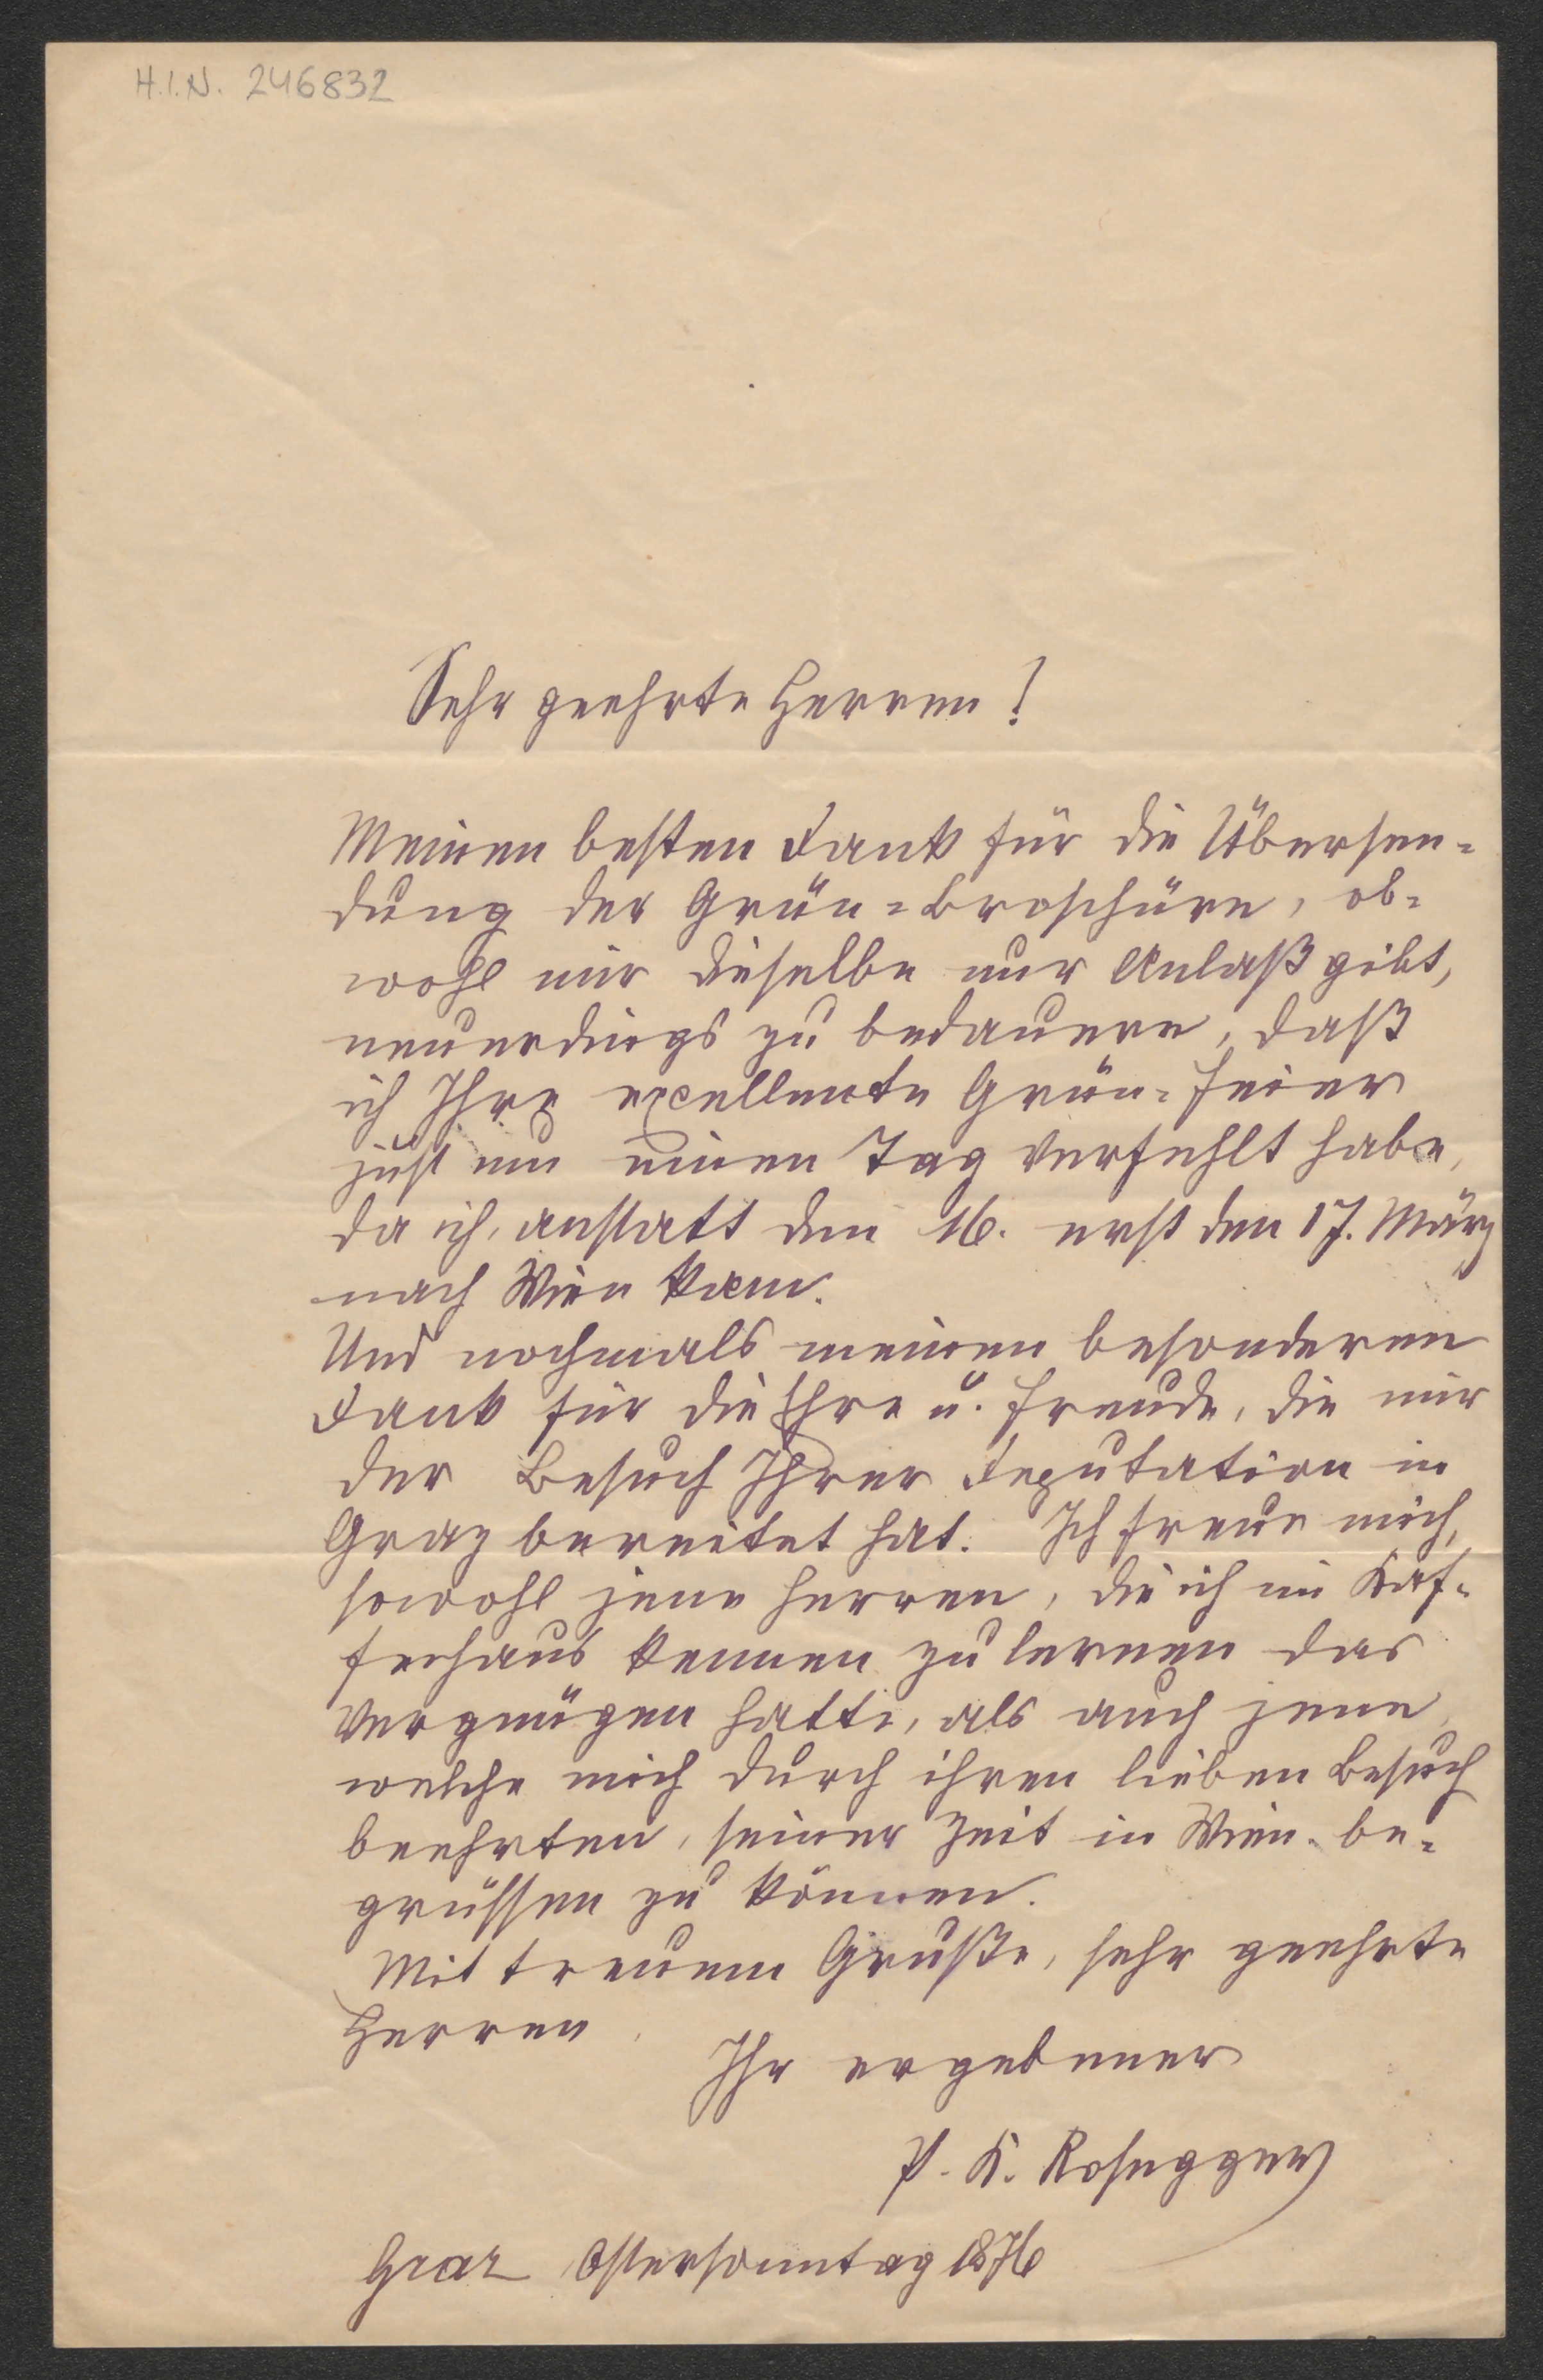 H.I.N. 246832
Sehr geehrte Herren!
Meinen besten Dank für die Übersen=
dung der Grün=Broschüre, ob=
wohl mir dieselbe nur Anlaß gibt,
neuerdings zu bedauern, daß
ich Ihre excellente Grün=Feier
just um einen Tag verfehlt habe,
da ich, anstatt den 16. erst den 17. März
nach Wien kam.
Und nochmals meinen besonderen
Dank für die Ehre u. Freude, die mir
der Besuch Ihrer Deputation in
Graz bereitet hat. Ich freue mich,
sowohl jene Herren, die ich im Kaf=
feehaus kennen zu lernen das
Vergnügen hatte, als auch jene,
welche mich durch ihren lieben Besuch
beehrten, seiner Zeit in Wien be=
grüssen zu können.
Mit treuem Gruße, sehr geehrte
Herren,
Ihr ergebener
P. K. Rosegger
Graz Ostersonntag 1876